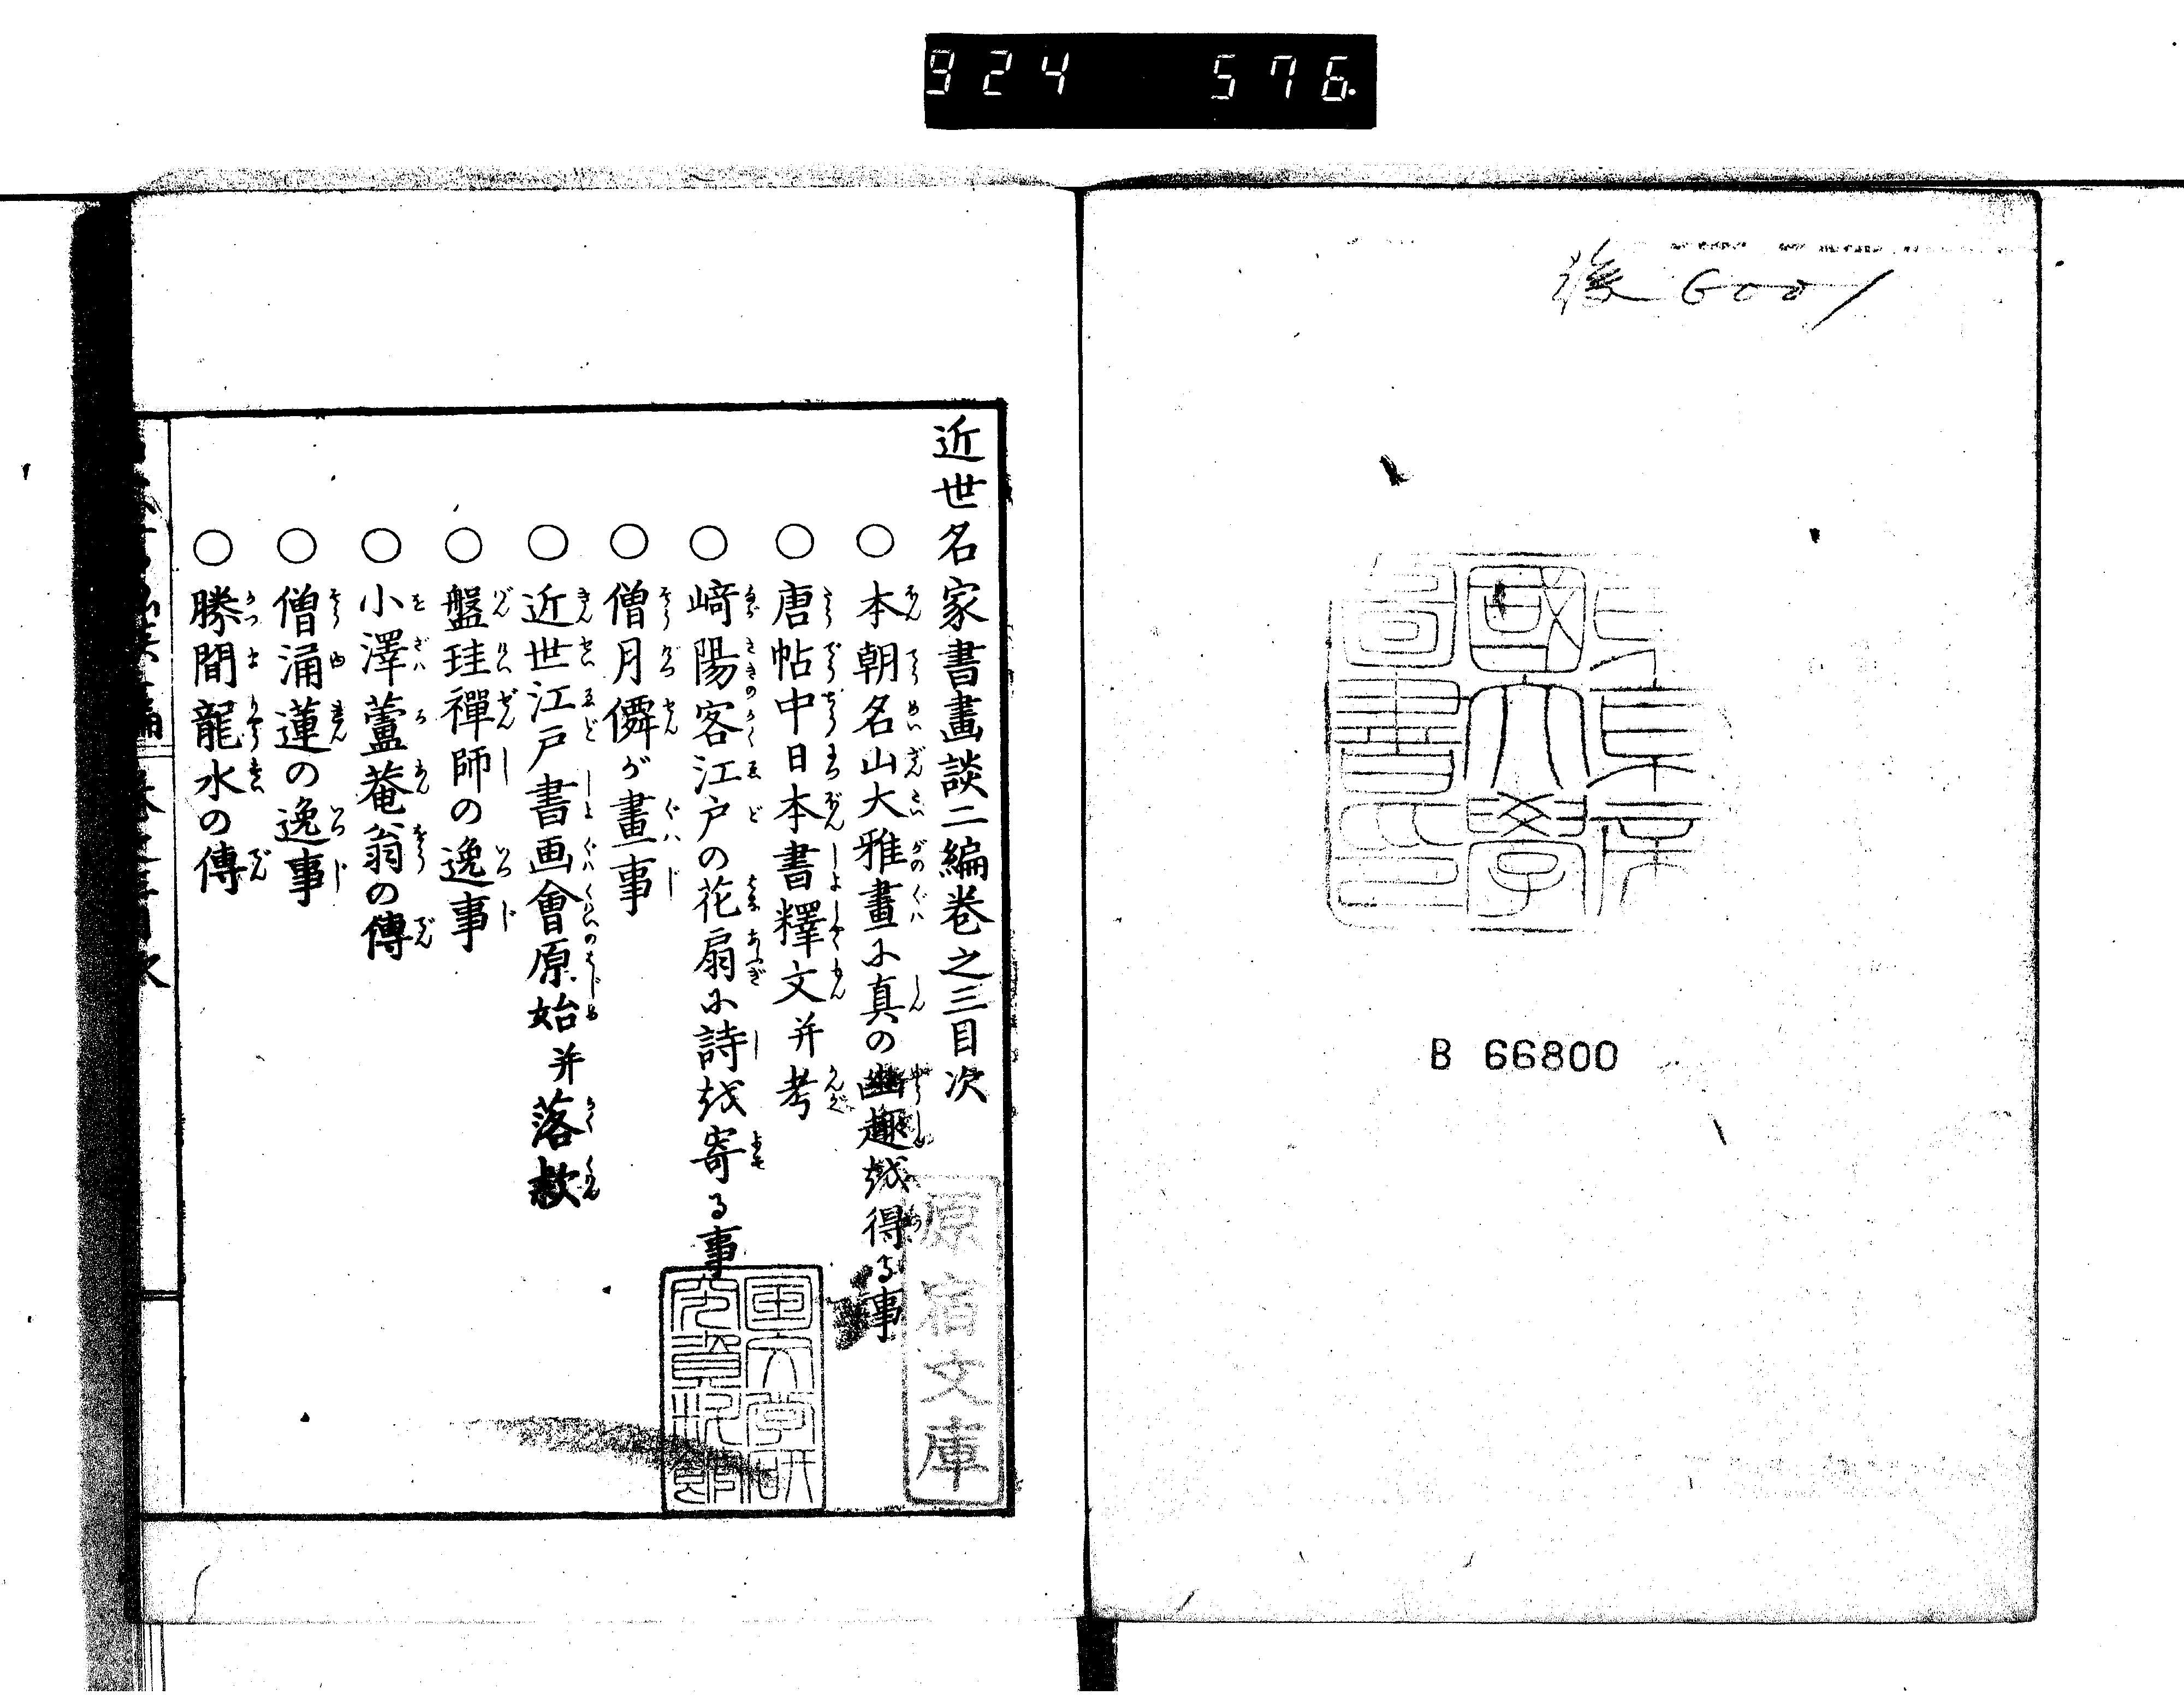 924 576.
後 6001
國
大
學
B 66800
近世名家書畫談二編巻之三目次
○ 本朝名山大雅畫に真の幽趣を得る事
○ 唐帖中日本書釋文并考
○ 﨑陽客江戸の花扇に詩を寄る事
○ 僧月僲が畫事
○ 近世江戸書画會原始并落款
○ 盤珪禪師の逸事
○ 小澤蘆菴翁の傳
○ 僧涌蓮の逸事
○ 勝間龍水の傳
原宿文庫
国文学研
究資料館